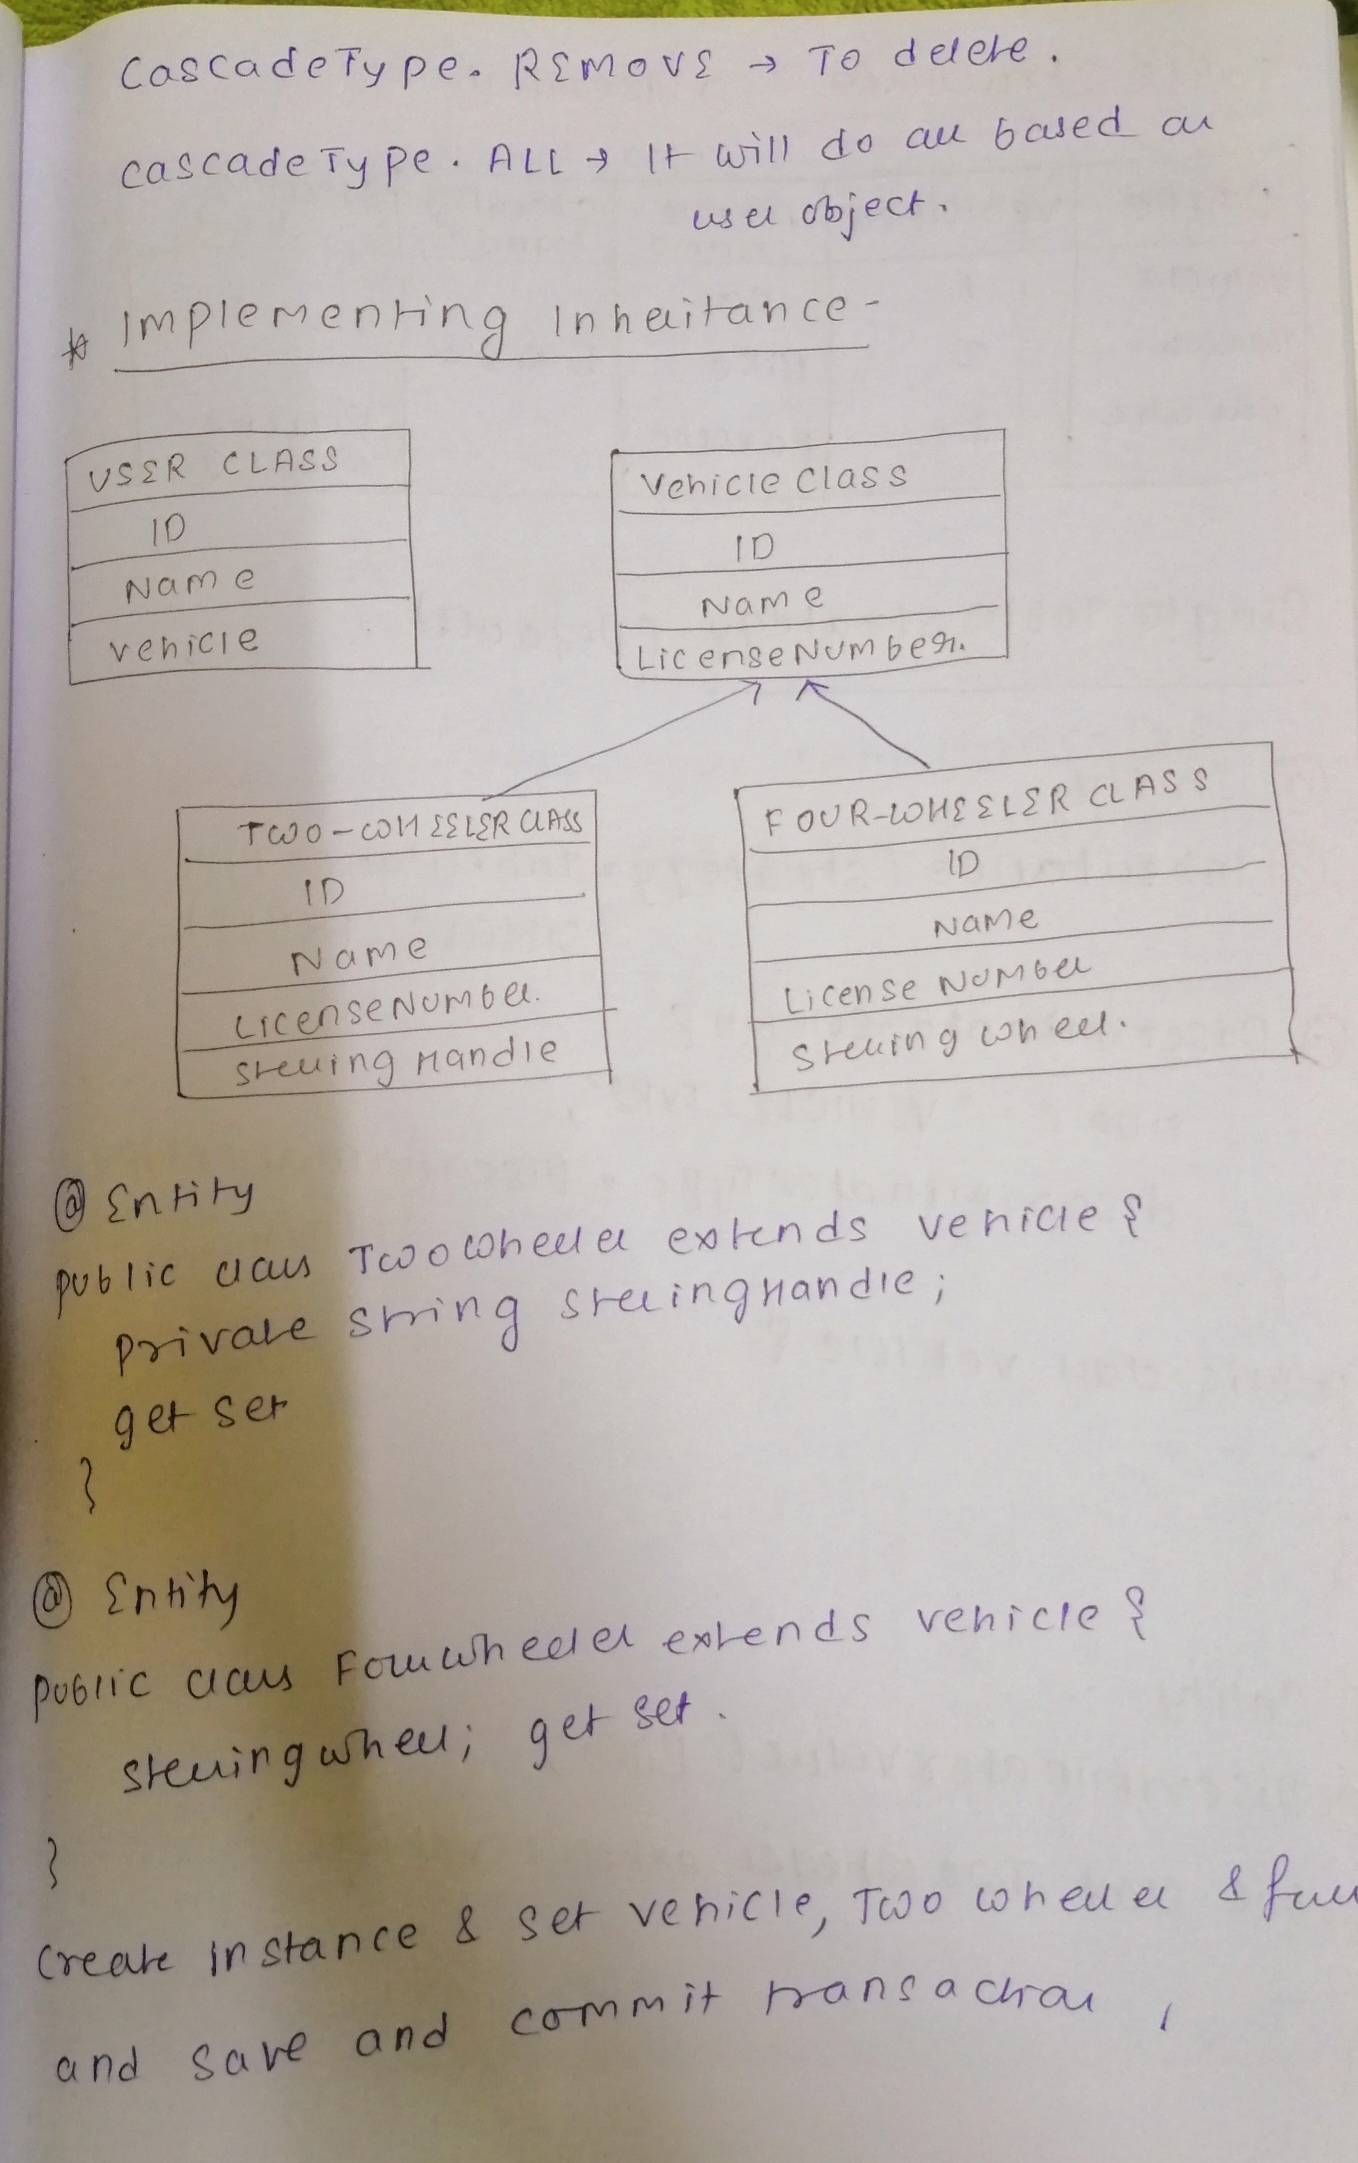 CascadeType. REMOVE → To delete.
CascadeType. ALL → It will do all based on
user object.
* Implementing Inheritance -
USER CLASS
ID
Name
vehicle
Vehicle Class
ID
Name
LicenseNumber.
TWO-WHEELER CLASS
ID
Name
LicenseNumber.
Steering Handle
FOUR-WHEELER CLASS
ID
Name
License Number
Steering wheel.
@ Entity
public class TwoWheeler extends vehicle {
private String SteeringHandle;
get set
}
@ Entity
public class Fourwheeler extends vehicle {
Steeringwheel; get set.
}
Create instance & set vehicle, Two wheeler & four
and save and commit transaction,